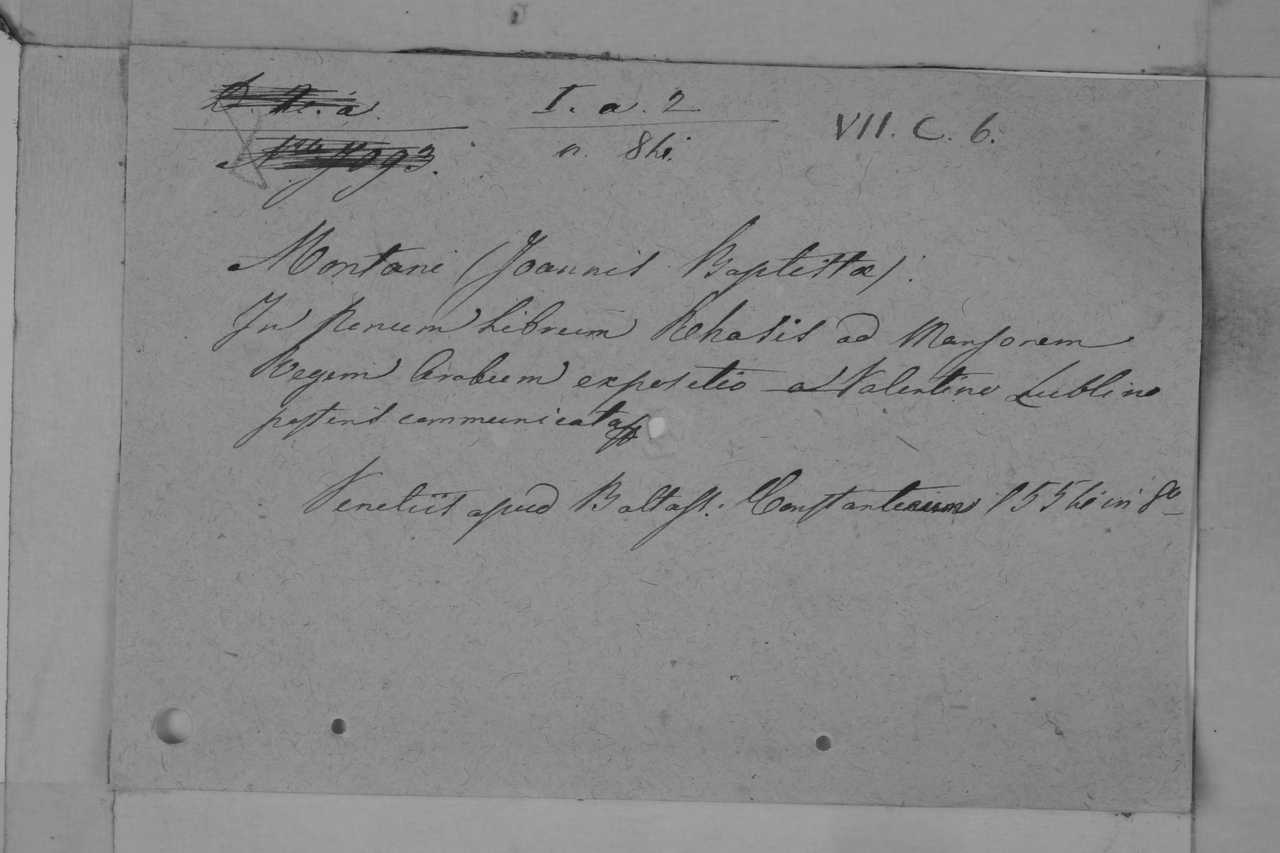 I. a. 2 VII. C. 6.
n. 84.
Montani (Joannis Baptistae).
In nonum librum Rhasis ad Mansorem
Regem Arabum expositio a Valentino Lublino
posteris communicata
Venetiis apud Baltass. Constantinum 1554 in 8º